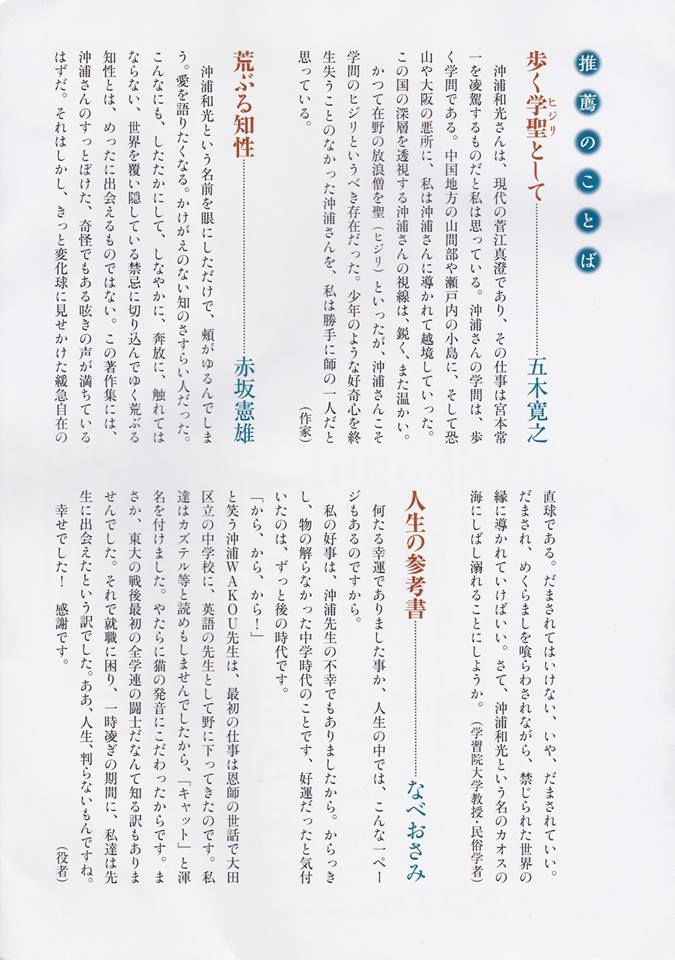 推薦のことば
歩く学聖ヒジリとして………五木寛之
沖浦和光さんは、現代の菅江真澄であり、その仕事は宮本常
一を凌駕するものだと私は思っている。沖浦さんの学問は、歩
く学問である。中国地方の山間部や瀬戸内の小島に、そして恐
山や大阪の悪所に、私は沖浦さんに導かれて越境していった。
この国の深層を透視する沖浦さんの視線は、鋭く、また温かい。
かつて在野の放浪僧を聖(ヒジリ)といったが、沖浦さんこそ
学問のヒジリというべき存在だった。少年のような好奇心を終
生失うことのなかった沖浦さんを、私は勝手に師の一人だと
思っている。
(作家)
荒ぶる知性………赤坂憲雄
沖浦和光という名前を眼にしただけで、頰がゆるんでしま
う。愛を語りたくなる。かけがえのない知のさすらい人だった。
こんなにも、したたかにして、しなやかに、奔放に、触れては
ならない、世界を覆い隠している禁忌に切り込んでゆく荒ぶる
知性とは、めったに出会えるものではない。この著作集には、
沖浦さんのすっとぼけた、奇怪でもある呟きの声が満ちている
はずだ。それはしかし、きっと変化球に見せかけた緩急自在の
直球である。だまされてはいけない、いや、だまされていい。
だまされ、めくらましを喰らわされながら、禁じられた世界の
縁に導かれていけばいい。さて、沖浦和光という名のカオスの
海にしばし溺れることにしようか。
(学習院大学教授・民俗学者)
人生の参考書………なべおさみ
何たる幸運でありました事か、人生の中では、こんな一ペー
ジもあるのですから。
私の好事は、沖浦先生の不幸でもありましたから。からっき
し、物の解らなかった中学時代のことです、好運だったと気付
いたのは、ずっと後の時代です。
「から、から、から!」
と笑う沖浦WAKOU先生は、最初の仕事は恩師の世話で大田
区立の中学校に、英語の先生として野に下ってきたのです。私
達はカズテル等と読めもしませんでしたから、「キャット」と渾
名を付けました。やたらに猫の発音にこだわったからです。ま
さか、東大の戦後最初の全学連の闘士だなんて知る訳もありま
せんでした。それで就職に困り、一時凌ぎの期間に、私達は先
生に出会えたという訳でした。ああ、人生、判らないもんですね。
幸せでした! 感謝です。
(役者)